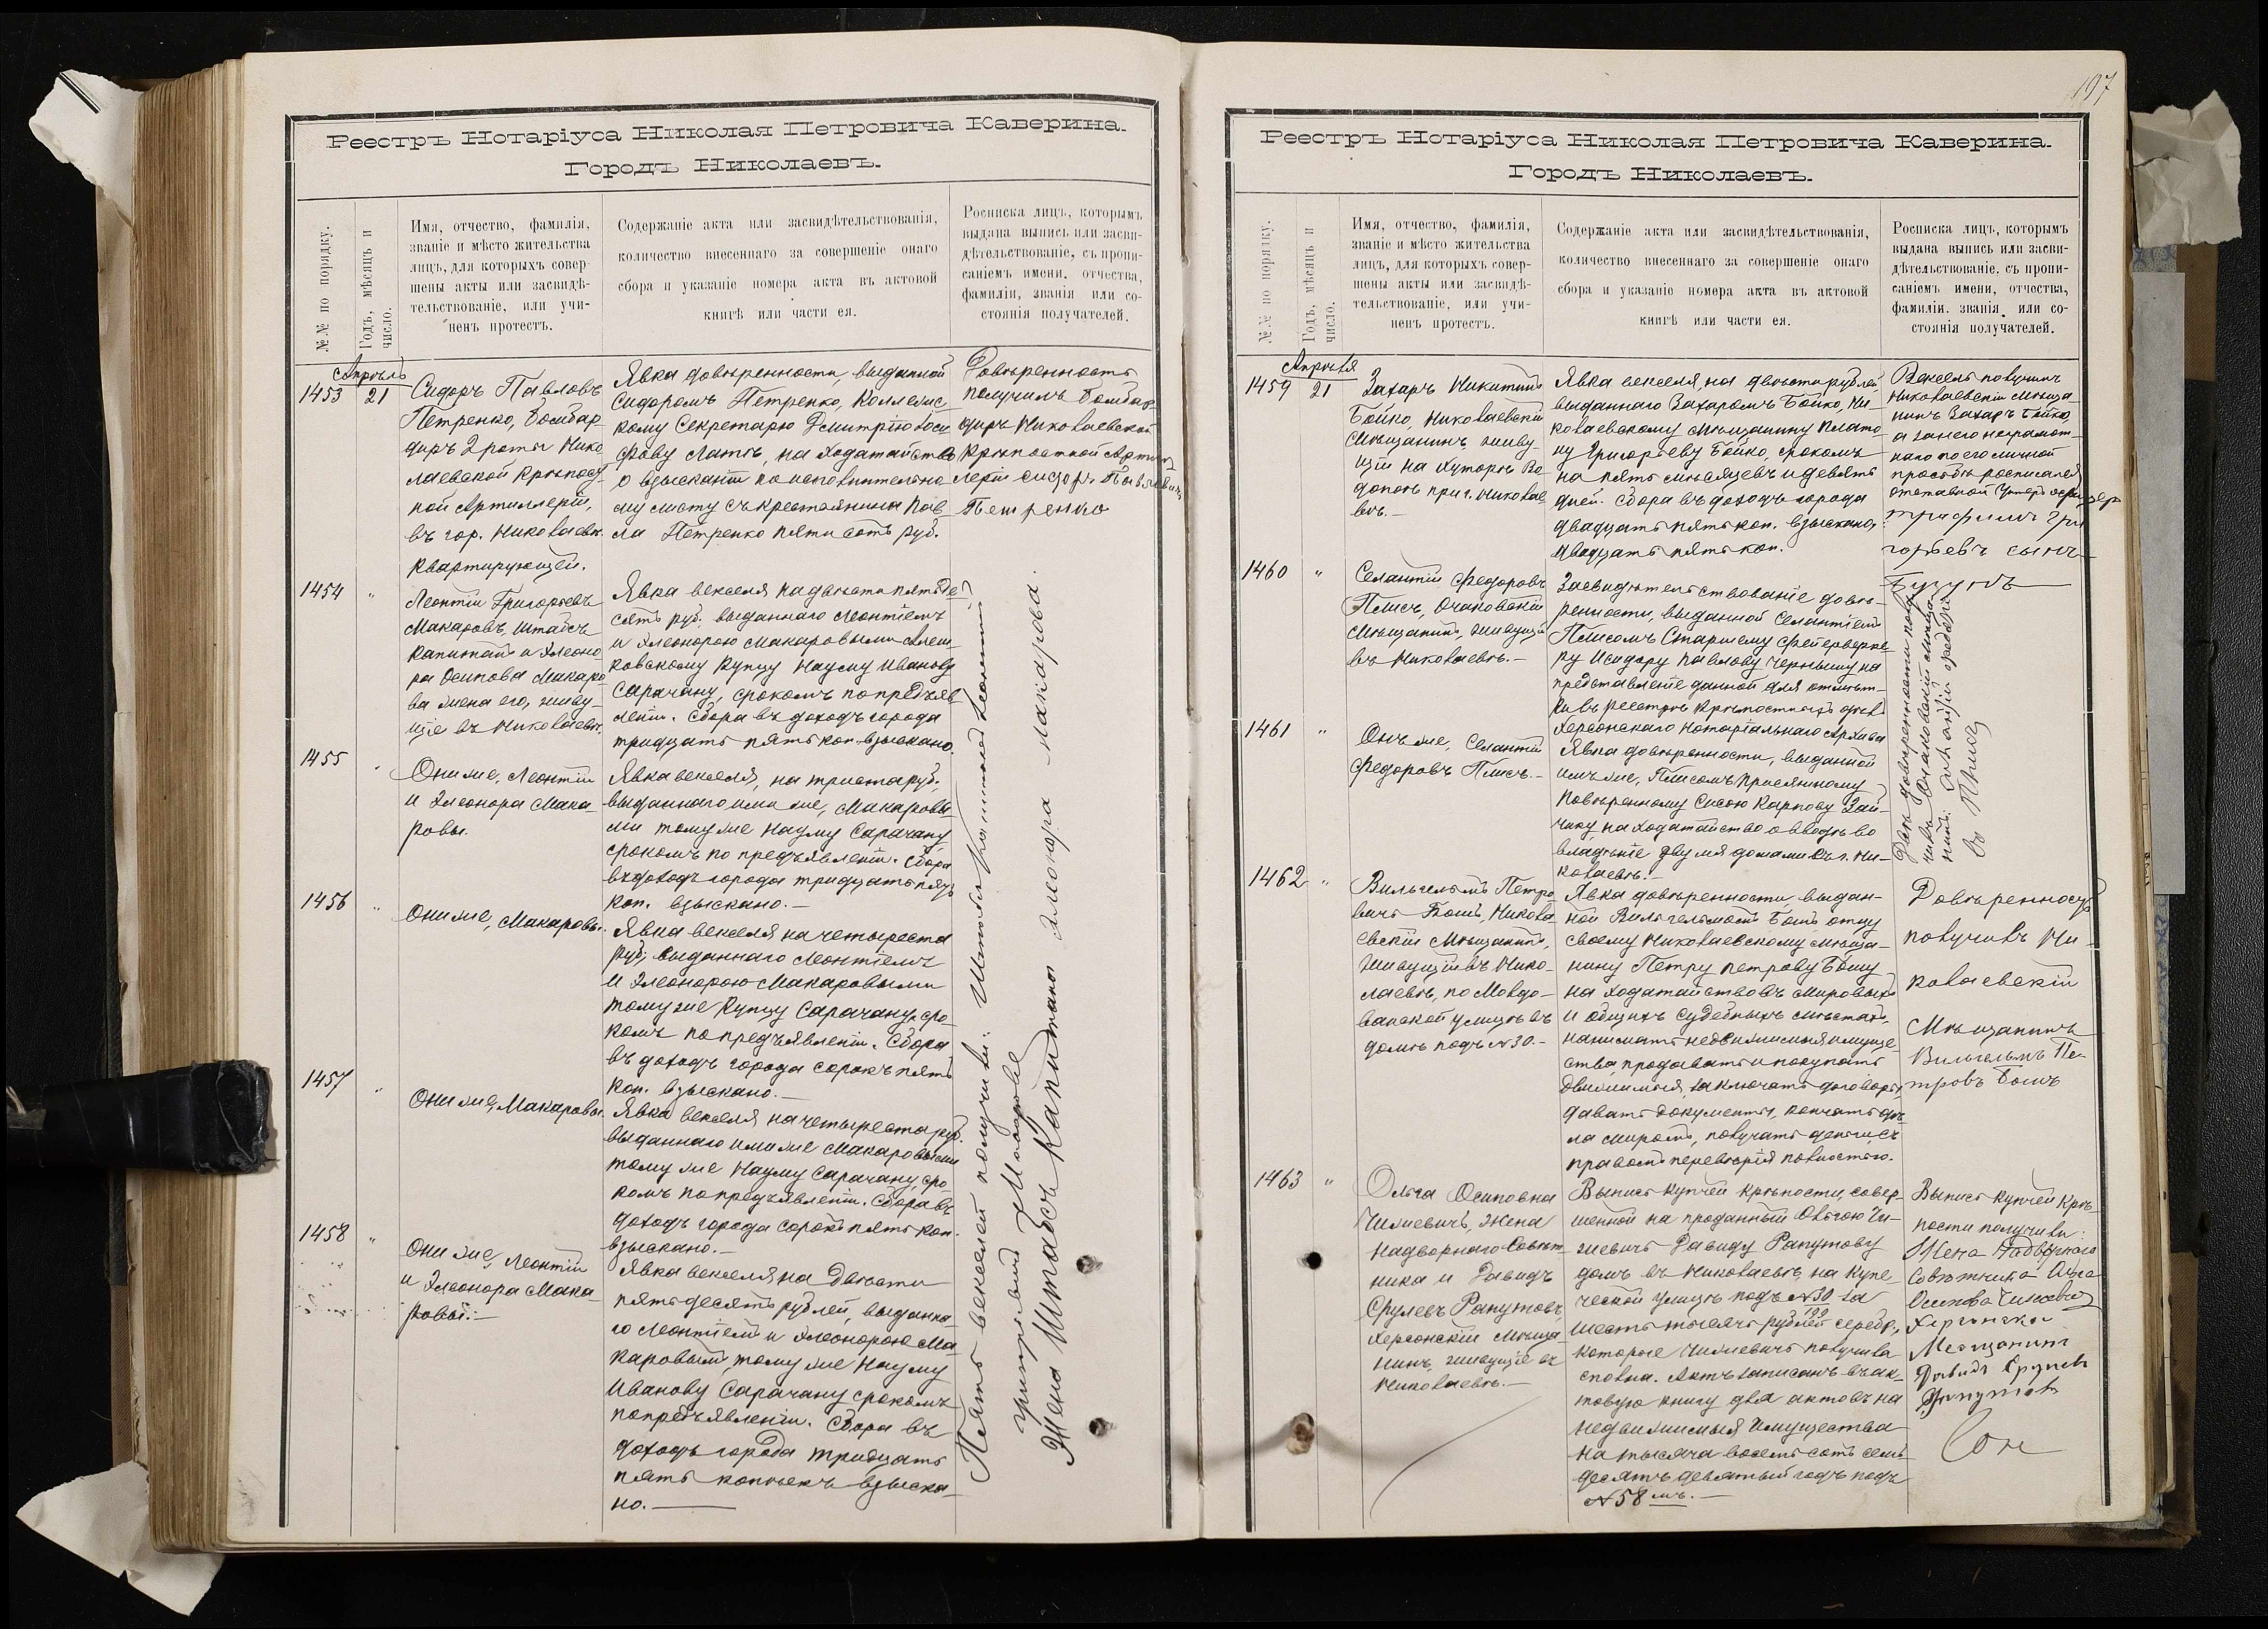 Реестръ Нотаріуса Николая Петровича Каверина.
Городъ Николаевъ.
№№ по порядку.
Годъ, мѣсяцъ и
число.
Имя, отчество, фамилія,
званіе и мѣсто жительства
лицъ, для которыхъ совер-
шены акты или засвидѣ-
тельствованіе, или учи-
ненъ протестъ.
Содержаніе акта или засвидѣтельствованія,
количество внесеннаго за совершеніе онаго
сбора и указаніе номера акта въ актовой
книгѣ или части ея.
Росписка лицъ, которымъ
выдана выпись или засви-
дѣтельствованіе, съ пропи-
саніемъ имени, отчества,
фамиліи, званія или со-
стоянія получателей.
Апрѣль
1453
21
Сидоръ Павловъ
Петренко, бомбар-
диръ 2 роты Нико
лаевской Крѣпост
ной Артиллеріи,
въ гор. Николаевѣ
квартирующей.
Явка довѣренности, выданной
Сидоромъ Петренко, Коллежс
кому Секретарю Дмитрію
на ходатайство
о взысканіи по исполнительно
му листу съ крестьянина Пав
ла Петренко пяти сотъ руб.
Довѣренность
получилъ бомбар-
диръ Николаевской
Крѣпостной Артил
леріи Сидоръ Павловичъ
Петренко
1454
"
Леонтій Григорьевъ
Макаровъ, Штабсъ
Капитанъ и Элеоно
ра Осипова Макаро
ва жена его, живу-
щіе въ Николаевѣ.
Явка векселя на двѣсти пятьде
сятъ руб. выданнаго Леонтіемъ
и Элеонорою Макаровыми Алеш
ковскому Купцу Науму Иванову
Сарачану, срокомъ по предъяв
леніи. Сбора въ доходъ города
тридцать пять коп. взыскано.
1455
"
Они же, Леонтій
и Элеонора Мака-
ровы.
Явка векселя, на триста руб.,
выданнаго ими же, Макаровы
ми тому же Науму Сарачану,
срокомъ по предъявленіи. Сбора
въ доходъ города тридцать пять
коп. взыскано.—
1456
"
Они же, Макаровы.
Явка векселя на четыреста
руб., выданнаго Леонтіемъ
и Элеонорою Макаровыми
тому же Купцу Сарачану, сро-
комъ по предъявленіи. Сбора
въ доходъ города сорокъ пять
коп. взыскано.—
1457
"
Они же, Макаровы.
Явка векселя на четыреста руб.
выданнаго ими же Макаровыми
тому же Науму Сарачану, сро
комъ по предъявленіи. Сбора въ
доходъ города сорокъ пять коп.
взыскано.—
1458
"
Они же, Леонтій
и Элеонора Мака
ровы.—
Явка векселя на двѣсти
пятьдесятъ рублей, выданна-
го Леонтіемъ и Элеонорою Ма
каровыми, тому же Науму
Иванову Сарачану срокомъ
по предъявленіи. Сбора въ
доходъ города тридцать
пять копѣекъ взыска
но.—
Пять векселей получили: Штабсъ Капитанъ Леонтій
Григорьевъ Макаровъ
Жена Штабсъ Капитана Элеонора Макарова.
197
Реестръ Нотаріуса Николая Петровича Каверина.
Городъ Николаевъ.
№№ по порядку.
Годъ, мѣсяцъ и
число.
Имя, отчество, фамилія,
званіе и мѣсто жительства
лицъ, для которыхъ совер-
шены акты или засвидѣ-
тельствованіе, или учи-
ненъ протестъ.
Содержаніе акта или засвидѣтельствованія,
количество внесеннаго за совершеніе онаго
сбора и указаніе номера акта въ актовой
книгѣ или части ея.
Росписка лицъ, которымъ
выдана выпись или засви-
дѣтельствованіе, съ пропи-
саніемъ имени, отчества,
фамиліи, званія, или со-
стоянія получателей.
Апрѣля
1459
21
Захаръ Никитинъ
Бойко, Николаевскій
Мѣщанинъ, живу-
щій на хуторѣ Во
допоѣ при г. Николае
вѣ.—
Явка векселя, на двѣсти рублей
выданнаго Захаромъ Бойко, Ни-
колаевскому мѣщанину Плато-
ну Григорьеву Бойко, срокомъ
на пять мѣсяцевъ и девять
дней. Сбора въ доходъ города
двадцать пять коп. взыскано
двадцать пять коп.
Вексель получилъ
Николаевскій мѣща-
нинъ Захаръ Бойко,
а за него неграмот-
наго по его личной
просьбѣ росписался
отставной Унтеръ офицеръ
Трофимъ Гри
горьевъ сынъ
1460
"
Селантій Федоровъ
Плисъ, Очаковскій
Мѣщанинъ, живущій
въ Николаевѣ.—
Засвидѣтельствованіе довѣ-
ренности, выданной Селантіемъ
Плисомъ Старшему Фейерверке
ру Исидору Павлову Чернышу на
представленіе данной для отмѣт-
ки въ реестрѣ крѣпостныхъ дѣлъ
Херсонскаго Нотаріальнаго Архива
1461
"
Онъ же, Селантій
Федоровъ Плисъ.—
Явка довѣренности, выданной
имъ же, Плисомъ Присяжному
Повѣренному Сысою Карпову Зай-
чику на ходатайство о вводѣ во
владѣніе двумя домами въ г. Ни-
колаевѣ.—
Двѣ довѣренности полу-
чилъ Очаковскій мѣща-
нинъ Федоро
въ Плисъ
1462
"
Вильгельмъ Петро
вичъ Бошъ, Никола
евскій Мѣщанинъ,
живущій въ Нико-
лаевѣ, по Молдо-
ванской улицѣ въ
домѣ подъ №30.—
Явка довѣренности, выдан-
ной Вильгельмомъ Бошъ отцу
своему Николаевскому мѣща-
нину Петру Петрову Бошу
на ходатайство въ Мировыхъ
и общихъ Судебныхъ мѣстахъ,
нанимать недвижимыя имуще-
ства продавать и покупать
движимыя, заключать договоры,
давать документы, кончать дѣ
ла миромъ, получать деньги, съ
правомъ передовѣрія полностью.
Довѣренность
получилъ Ни-
колаевскій
Мѣщанинъ
Вильгельмъ Пе-
тровъ Бошъ
1463
"
Ольга Осиповна
Чижевичъ, жена
Надворнаго Совѣт
ника и Давидъ
Срулевъ Рапутовъ,
Херсонскій Мѣща
нинъ, живущіе въ
Николаевѣ.—
Выпись купчей крѣпости, совер-
шенной на проданный Ольгою Чи-
жевичъ Давиду Рапутову
домъ въ Николаевѣ, на Купе-
ческой улицѣ подъ №30 за
шесть тысячъ рублей серебр.,
которые Чижевичъ получила
сполна. Актъ записанъ въ ак-
товую книгу для актовъ на
недвижимыя имущества
на тысяча восемь сотъ семь
десятъ девятый годъ подъ
№58 мъ.—
Выпись купчей крѣ-
пости получили:
Жена Надворнаго
Совѣтника Ольга
Осипова Чижевичъ
Херсонскій
Мещанинъ
Давидъ Срулевъ
Рапутовъ